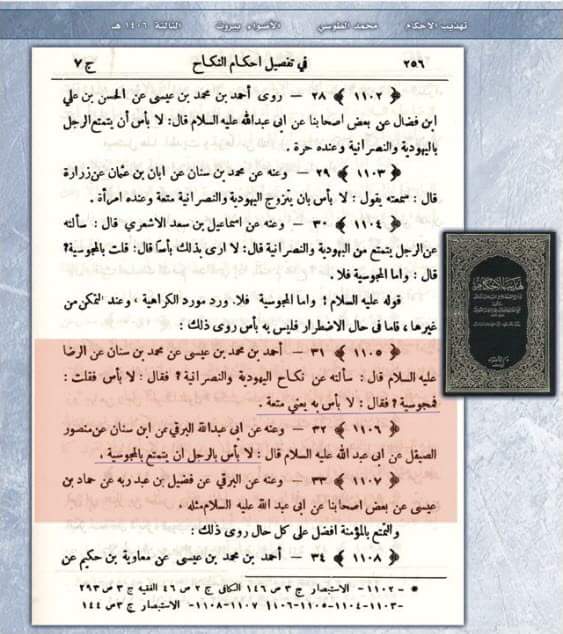 تهذيب الأحكام محمد الطوسي الأضواء بيروت الثالثة ١٤٠٦ هـ
٢٥٦ في تفصيل احكام النكاح ج ٧
﴿ ١١٠٢ ﴾ ٢٨ — روى أحمد بن محمد بن عيسى عن الحسن بن علي
ابن فضال عن بعض اصحابنا عن ابي عبدالله عليه السلام قال: لا بأس أن يتمتع الرجل
باليهودية والنصرانية وعنده حرة .
﴿ ١١٠٣ ﴾ ٢٩ — وعنه عن محمد بن سنان عن ابان بن عثمان عن زرارة
قال : سمعته يقول : لا بأس بان يتزوج اليهودية والنصرانية متعة وعنده امرأة .
﴿ ١١٠٤ ﴾ ٣٠ — وعنه عن اسماعيل بن سعد الاشعري قال : سألته
عن الرجل يتمتع من اليهودية والنصرانية قال: لا ارى بذلك بأسا قال: قلت بالمجوسية؟
قال : واما المجوسية فلا .
قوله عليه السلام : واما المجوسية فلا. ورد مورد الكراهية ، وعند التمكن من
غيرها ، فاما في حال الاضطرار فليس به بأس روى ذلك :
﴿ ١١٠٥ ﴾ ٣١ — أحمد بن محمد بن عيسى عن محمد بن سنان عن الرضا
عليه السلام قال : سألته عن نكاح اليهودية والنصرانية ؟ فقال : لا بأس فقلت :
فمجوسية ؟ فقال : لا بأس به يعني متعة .
﴿ ١١٠٦ ﴾ ٣٢ — وعنه عن ابي عبدالله البرقي عن ابن سنان عن منصور
الصيقل عن ابي عبد الله عليه السلام قال : لا بأس بالرجل ان يتمتع بالمجوسية .
﴿ ١١٠٧ ﴾ ٣٣ — وعنه عن البرقي عن فضيل بن عبد ربه عن حماد بن
عيسى عن بعض اصحابنا عن ابي عبد الله عليه السلام مثله .
والتمتع بالمؤمنة افضل على كل حال روى ذلك :
﴿ ١١٠٨ ﴾ ٣٤ — أحمد بن محمد بن عيسى عن معاوية بن حكيم عن
* — ١١٠٢ — الاستبصار ج ٣ ص ١٤٦ الكافي ج ٢ ص ٤٦ الفقيه ج ٣ ص ٢٩٣
— ١١٠٣ — ١١٠٤ — ١١٠٥ — ١١٠٦ — ١١٠٧ — ١١٠٨ — الاستبصار ج ٣ ص ١٤٤
تهذيب الأحكام